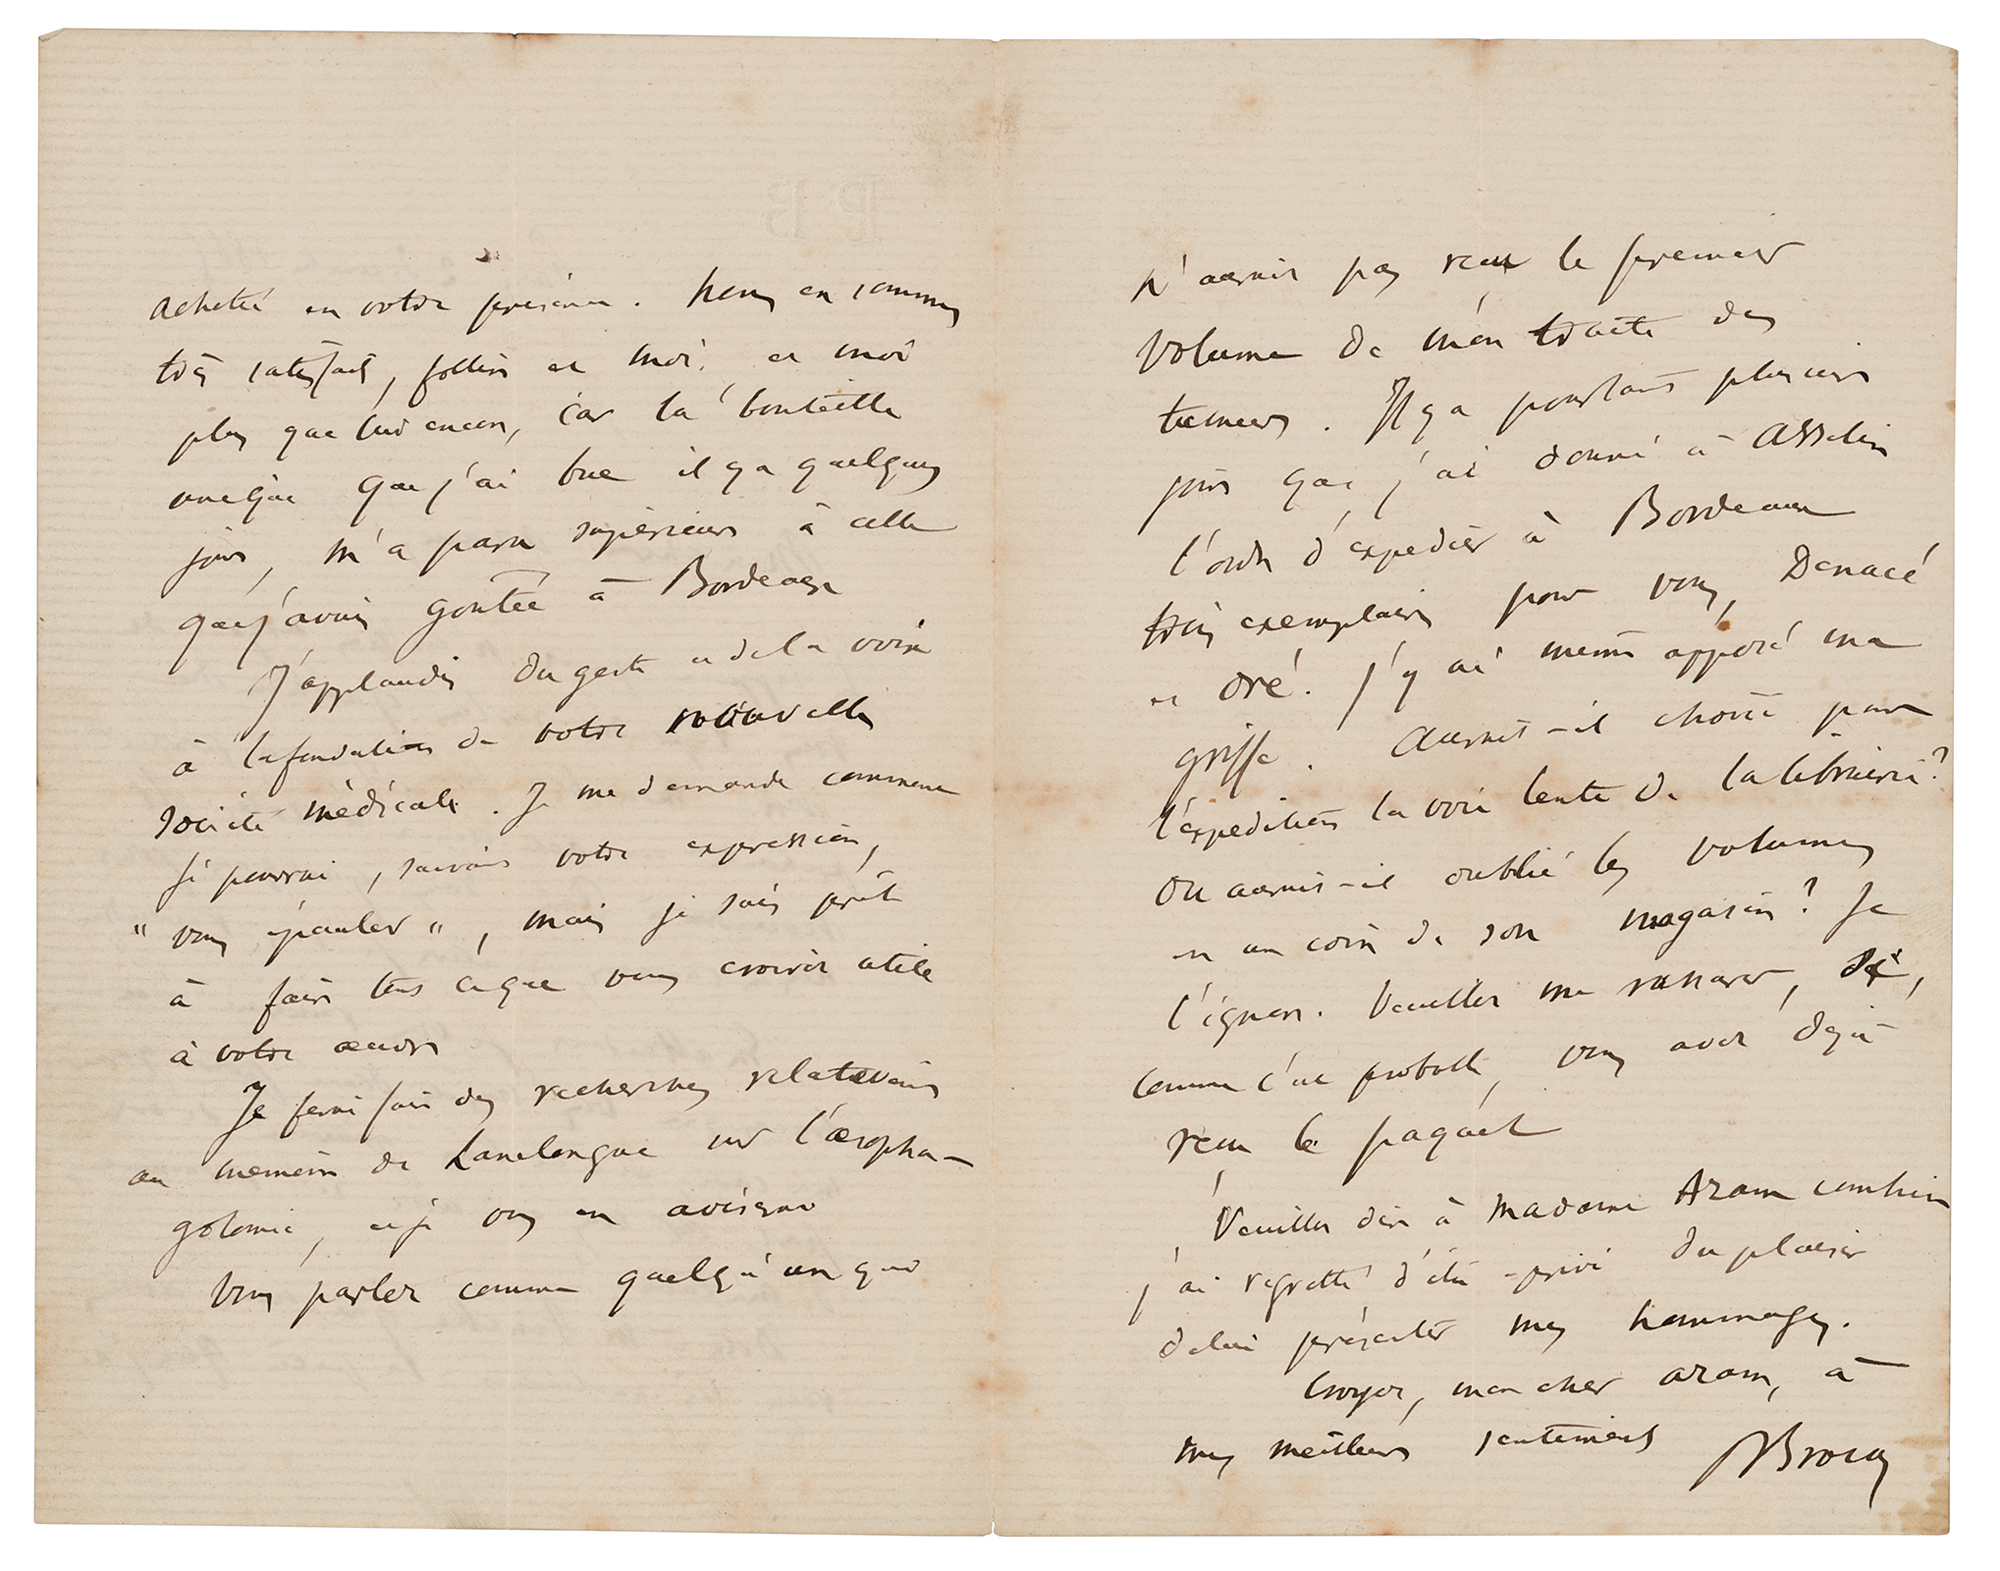 acheté en votre présence. Nous en sommes
très satisfaits, follin et moi, et moi
plus que lui encore, car la bouteille
unique que j'ai bue il y a quelques
jours, m'a paru supérieure à celle
que j'avais goûtée à Bordeaux
J'applaudis du geste et de la voix
à la fondation de votre nouvelle
société médicale. Je me demande comment
je pourrai, suivant votre expression,
"vous épauler", mais je suis prêt
à faire tout ce que vous croirez utile
à votre œuvre
Je ferai faire des recherches relatives
au mémoire de Lanelongue sur l'œsopha-
gotomie, et je vous en aviserai
Vous parlez comme quelqu'un qui
n'aurait pas reçu le premier
volume de mon traité des
tumeurs. Il y a pourtant plusieurs
jours que j'ai donné à Asselin
l'ordre d'expédier à Bordeaux
trois exemplaires pour vous, Denucé
et Oré. J'y ai même apposé ma
griffe. Aurait-il choisi pour
l'expédition la voie lente de la librairie?
Ou aurait-il oublié les volumes
en un coin de son magasin? Je
l'ignore. Veuillez me rassurer, si,
comme c'est probable, vous avez déjà
reçu le paquet
Veuillez dire à madame Azam combien
j'ai regretté d'être privé du plaisir
de lui présenter mes hommages.
Croyez, mon cher Azam, à
mes meilleurs sentiments
PBroca
PB